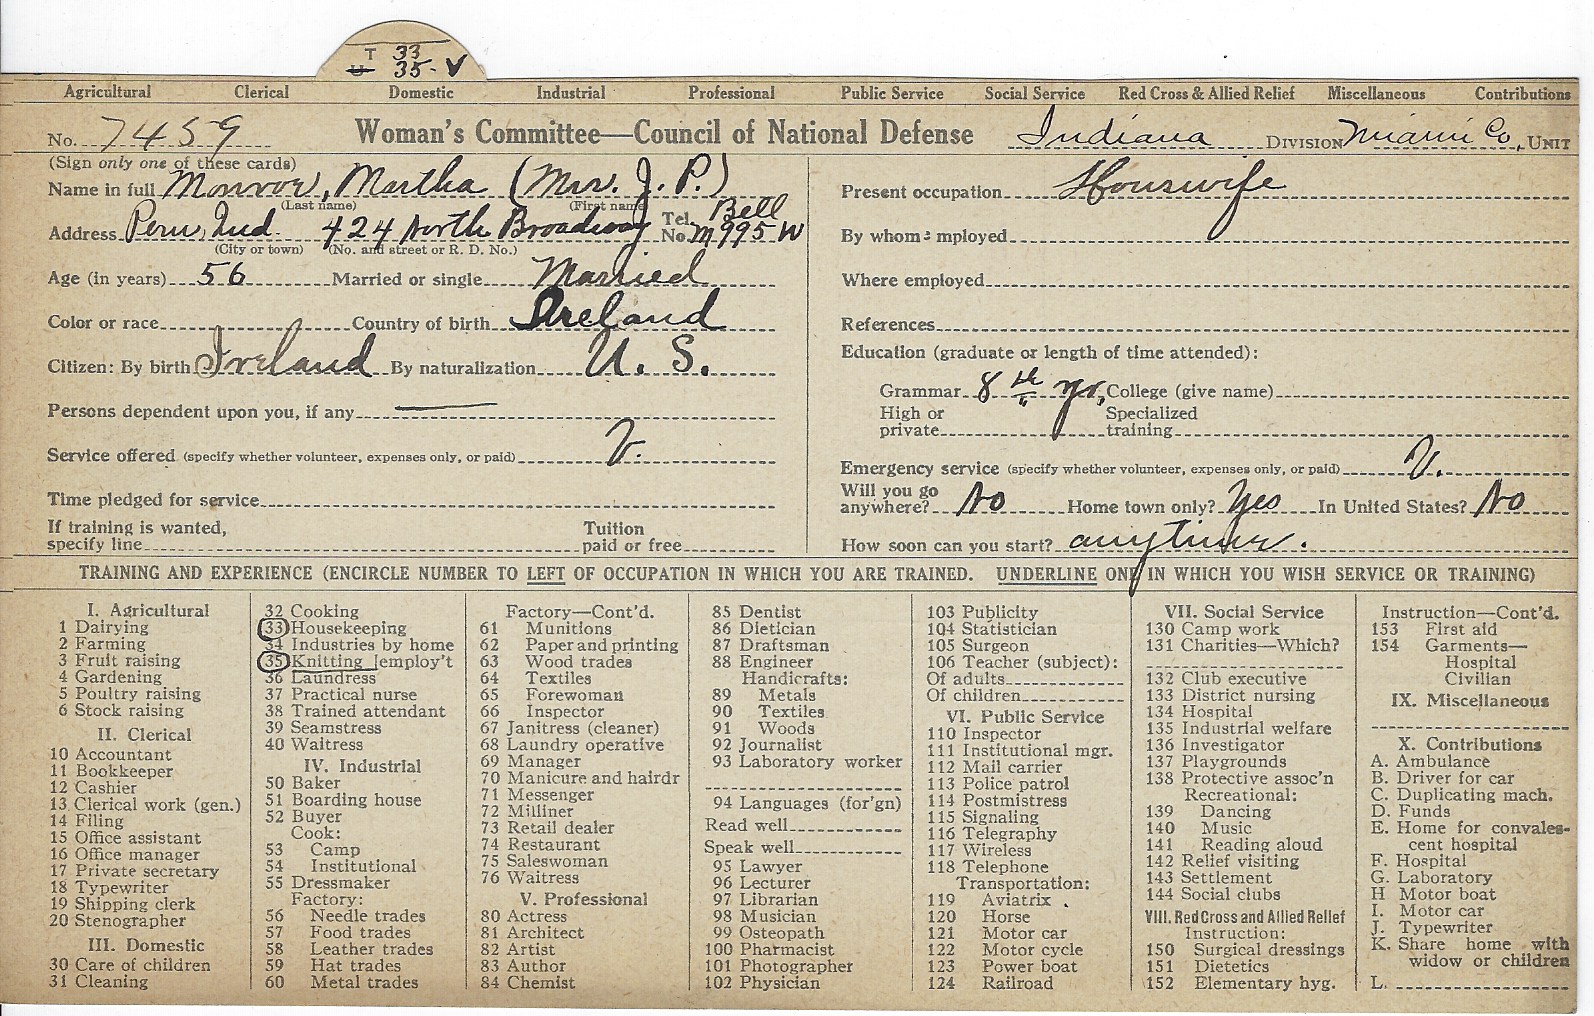 T 33
U 35-V
Agricultural Clerical Domestic Industrial Professional Public Service Social Service Red Cross & Allied Relief Miscellaneous Contributions
No. 7459 Woman's Committee—Council of National Defense Indiana DIVISION Miami Co. UNIT
(Sign only one of these cards)
Name in full Monroe, Martha (Mrs. J. P.)
(Last name) (First name)
Address Peru, Ind. 424 North Broadway Tel. No. Bell M995 W
(City or town) (No. and street or R. D. No.)
Age (in years) 56 Married or single Married
Color or race Country of birth Ireland
Citizen: By birth Ireland By naturalization U. S.
Persons dependent upon you, if any —
Service offered (specify whether volunteer, expenses only, or paid) V.
Time pledged for service
If training is wanted, Tuition
specify line paid or free
Present occupation Housewife
By whom employed
Where employed
References
Education (graduate or length of time attended):
Grammar 8th yr. College (give name)
High or Specialized
private training
Emergency service (specify whether volunteer, expenses only, or paid) V.
Will you go
anywhere? No Home town only? Yes In United States? No
How soon can you start? anytime.
TRAINING AND EXPERIENCE (ENCIRCLE NUMBER TO LEFT OF OCCUPATION IN WHICH YOU ARE TRAINED. UNDERLINE ONE IN WHICH YOU WISH SERVICE OR TRAINING)
I. Agricultural
1 Dairying
2 Farming
3 Fruit raising
4 Gardening
5 Poultry raising
6 Stock raising
II. Clerical
10 Accountant
11 Bookkeeper
12 Cashier
13 Clerical work (gen.)
14 Filing
15 Office assistant
16 Office manager
17 Private secretary
18 Typewriter
19 Shipping clerk
20 Stenographer
III. Domestic
30 Care of children
31 Cleaning
32 Cooking
33 Housekeeping
34 Industries by home
35 Knitting [employ't
36 Laundress
37 Practical nurse
38 Trained attendant
39 Seamstress
40 Waitress
IV. Industrial
50 Baker
51 Boarding house
52 Buyer
Cook:
53 Camp
54 Institutional
55 Dressmaker
Factory:
56 Needle trades
57 Food trades
58 Leather trades
59 Hat trades
60 Metal trades
Factory—Cont'd.
61 Munitions
62 Paper and printing
63 Wood trades
64 Textiles
65 Forewoman
66 Inspector
67 Janitress (cleaner)
68 Laundry operative
69 Manager
70 Manicure and hairdr
71 Messenger
72 Milliner
73 Retail dealer
74 Restaurant
75 Saleswoman
76 Waitress
V. Professional
80 Actress
81 Architect
82 Artist
83 Author
84 Chemist
85 Dentist
86 Dietician
87 Draftsman
88 Engineer
Handicrafts:
89 Metals
90 Textiles
91 Woods
92 Journalist
93 Laboratory worker
94 Languages (for'gn)
Read well
Speak well
95 Lawyer
96 Lecturer
97 Librarian
98 Musician
99 Osteopath
100 Pharmacist
101 Photographer
102 Physician
103 Publicity
104 Statistician
105 Surgeon
106 Teacher (subject):
Of adults
Of children
VI. Public Service
110 Inspector
111 Institutional mgr.
112 Mail carrier
113 Police patrol
114 Postmistress
115 Signaling
116 Telegraphy
117 Wireless
118 Telephone
Transportation:
119 Aviatrix
120 Horse
121 Motor car
122 Motor cycle
123 Power boat
124 Railroad
VII. Social Service
130 Camp work
131 Charities—Which?
132 Club executive
133 District nursing
134 Hospital
135 Industrial welfare
136 Investigator
137 Playgrounds
138 Protective assoc'n
Recreational:
139 Dancing
140 Music
141 Reading aloud
142 Relief visiting
143 Settlement
144 Social clubs
VIII. Red Cross and Allied Relief
Instruction:
150 Surgical dressings
151 Dietetics
152 Elementary hyg.
Instruction—Cont'd.
153 First aid
154 Garments—
Hospital
Civilian
IX. Miscellaneous
X. Contributions
A. Ambulance
B. Driver for car
C. Duplicating mach.
D. Funds
E. Home for convales-
cent hospital
F. Hospital
G. Laboratory
H Motor boat
I. Motor car
J. Typewriter
K. Share home with
widow or children
L.